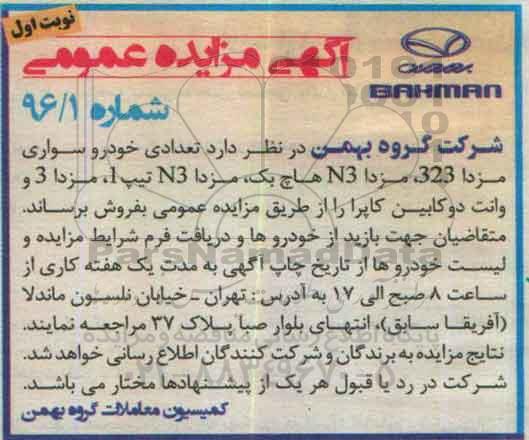 نوبت اول
آگهی مزایده عمومی
شماره ۹۶/۱
BAHMAN
شرکت گروه بهمن در نظر دارد تعدادی خودرو سواری
مزدا 323، مزدا N3 هاچ بک، مزدا N3 تیپ1، مزدا 3 و
وانت دوکابین کاپرا را از طریق مزایده عمومی بفروش برساند.
متقاضیان جهت بازید از خودرو ها و دریافت فرم شرایط مزایده و
لیست خودرو ها از تاریخ چاپ آگهی به مدت یک هفته کاری از
ساعت ۸ صبح الی ۱۷ به آدرس: تهران ـ خیابان نلسون ماندلا
(آفریقا سابق)، انتهای بلوار صبا پلاک ۳۷ مراجعه نمایند.
نتایج مزایده به برندگان و شرکت کنندگان اطلاع رسانی خواهد شد.
شرکت در رد یا قبول هر یک از پیشنهادها مختار می باشد.
کمیسیون معاملات گروه بهمن
ParsNamadData